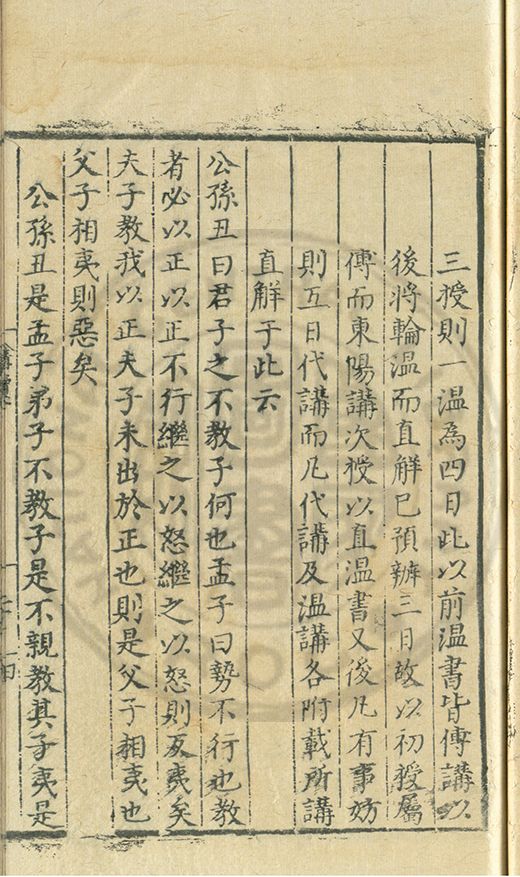 三授則一温為四日此以前温書皆傳講以
後將輪温而直解已預辦三日故以初授屬
傳而東陽講次授以直温書又後凡有事妨
則互日代講而凡代講及温講各附載所講
直解于此云
公孫丑曰君子之不教子何也孟子曰勢不行也教
者必以正以正不行繼之以怒繼之以怒則反夷矣
夫子教我以正夫子未出於正也則是父子相夷也
父子相夷則惡矣
公孫丑是孟子弟子不教子是不親教其子夷是